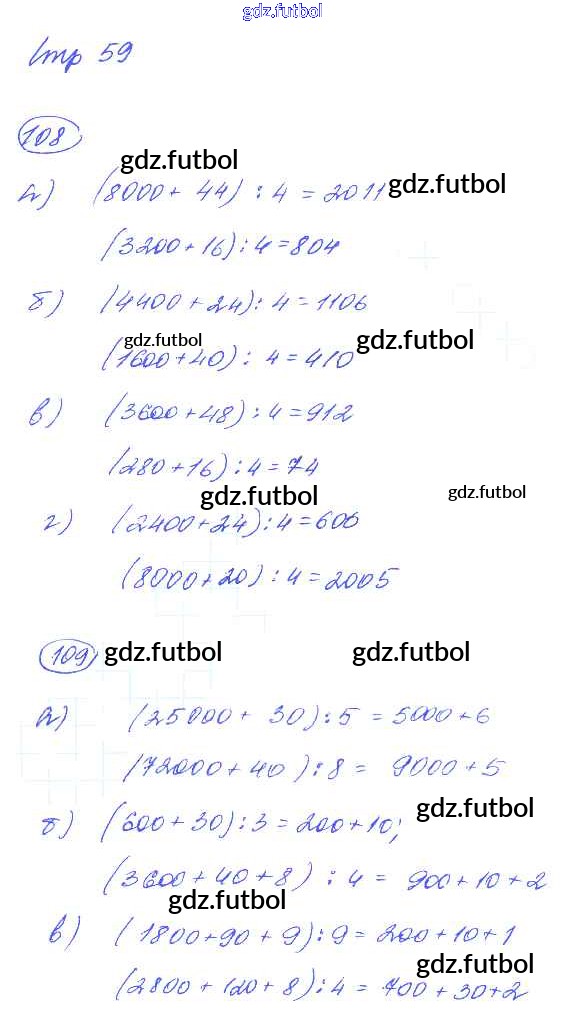 gdz.futbol
Стр 59
108
gdz.futbol
а) (8000 + 44) : 4 = 2011 gdz.futbol
(3200 + 16) : 4 = 804
б) (4400 + 24) : 4 = 1106
gdz.futbol gdz.futbol
(1600 + 40) : 4 = 410
в) (3600 + 48) : 4 = 912
(280 + 16) : 4 = 74
gdz.futbol gdz.futbol
г) (2400 + 24) : 4 = 606
(8000 + 20) : 4 = 2005
109 gdz.futbol gdz.futbol
а) (25000 + 30) : 5 = 5000 + 6
(72000 + 40) : 8 = 9000 + 5
gdz.futbol
б) (600 + 30) : 3 = 200 + 10;
(3600 + 40 + 8) : 4 = 900 + 10 + 2
gdz.futbol
в) (1800 + 90 + 9) : 9 = 200 + 10 + 1
gdz.futbol
(2800 + 120 + 8) : 4 = 700 + 30 + 2